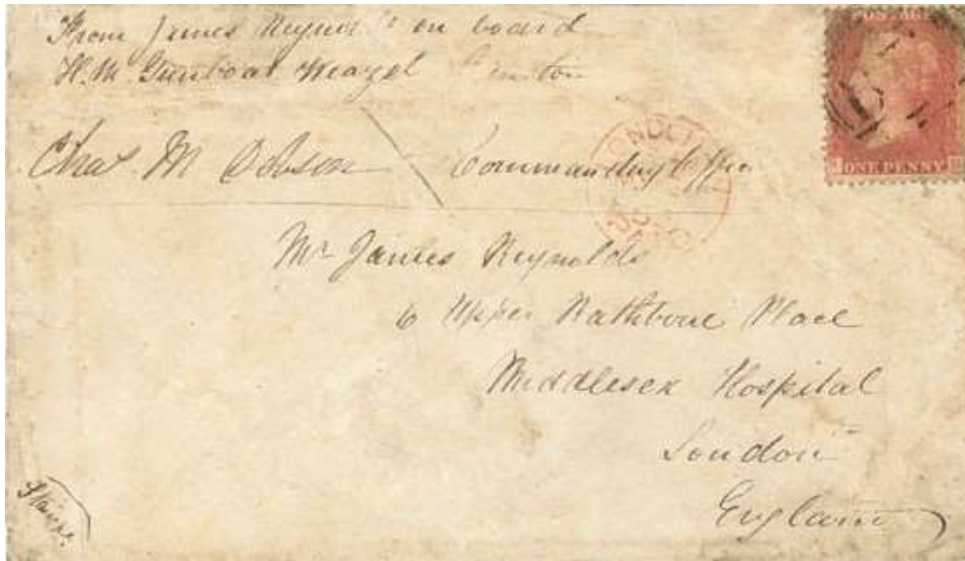 From James Reynolds on board
H.M. Gunboat Weazel Canton
POSTAGE
ONE PENNY
Commanding Officer
Mr James Reynolds
6 Upper Rathbone Place
Middlesex Hospital
London
England